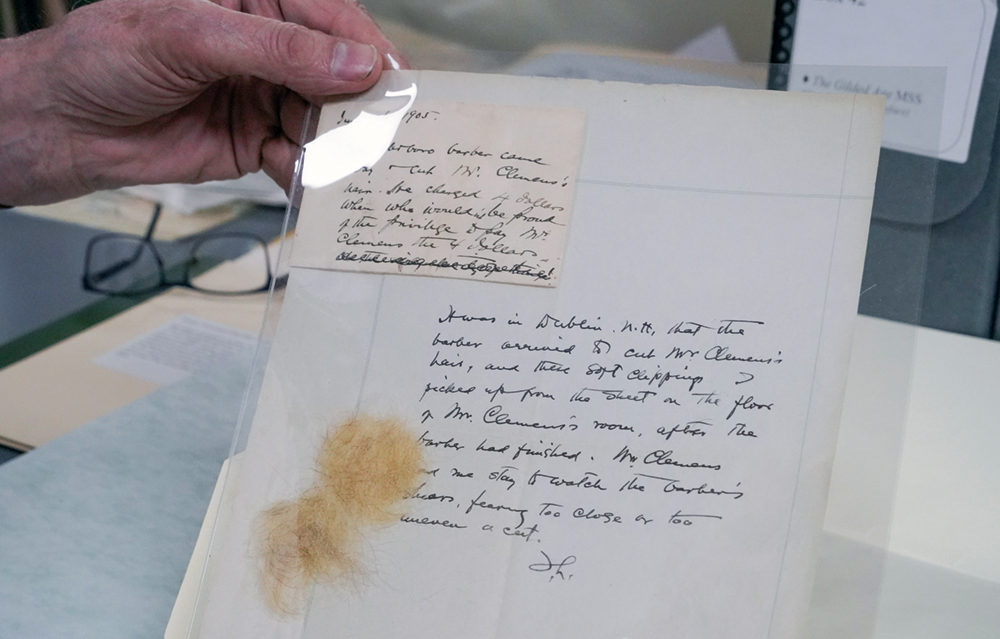 1905.
barber came
& cut Mr. Clemens's
hair. She charged 4 dollars
when who would be proud
of the privilege to pay Mr.
Clemens the 4 dollars.
It was in Dublin. N.H, that the
barber arrived to cut Mr Clemens's
hair, and these soft clippings I
picked up from the sheet on the floor
of Mr. Clemens's room, after the
barber had finished. Mr Clemens
me stay to watch the barber's
shears, fearing too close or too
uneven a cut.
The Gilded Age MSS